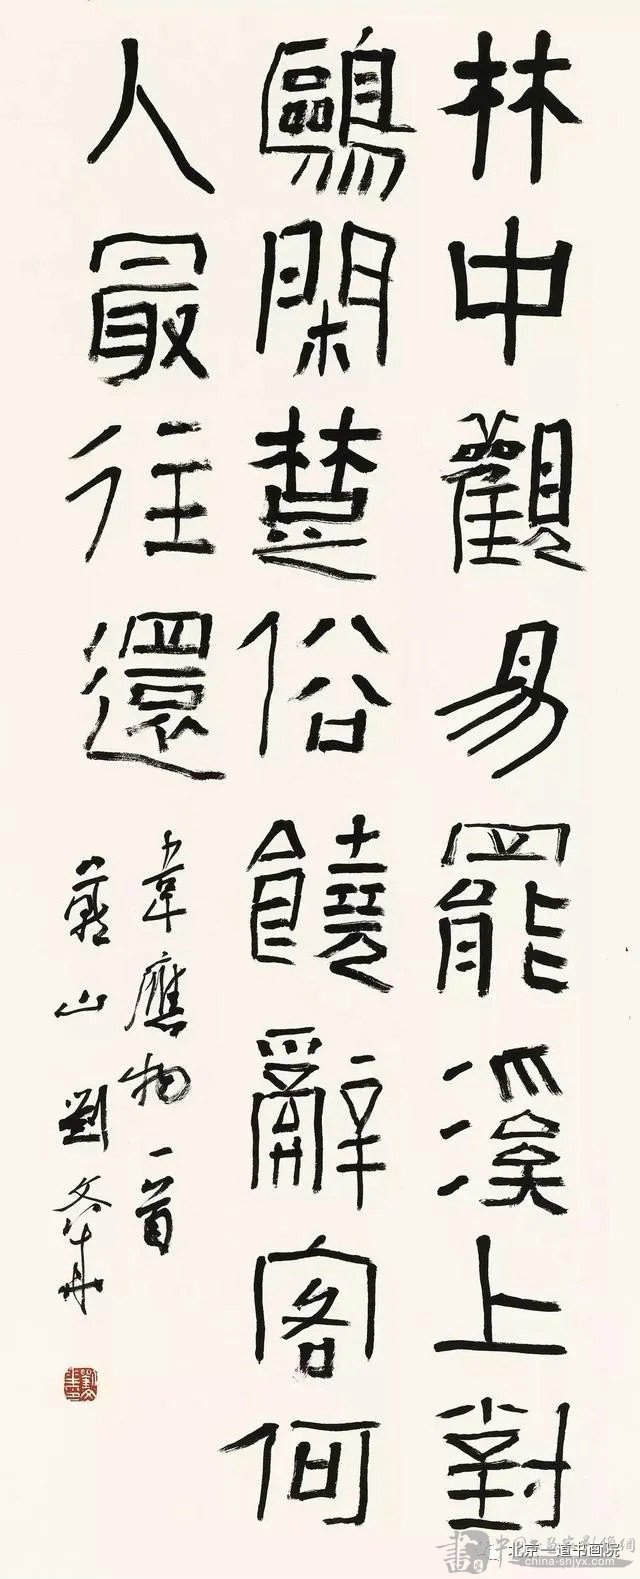 林中觀易罷溪上對
鷗閑楚俗饒辭客何
人最往還
韋應物一首
燕山劉文華
北京一道书画院
china-shjyx.com